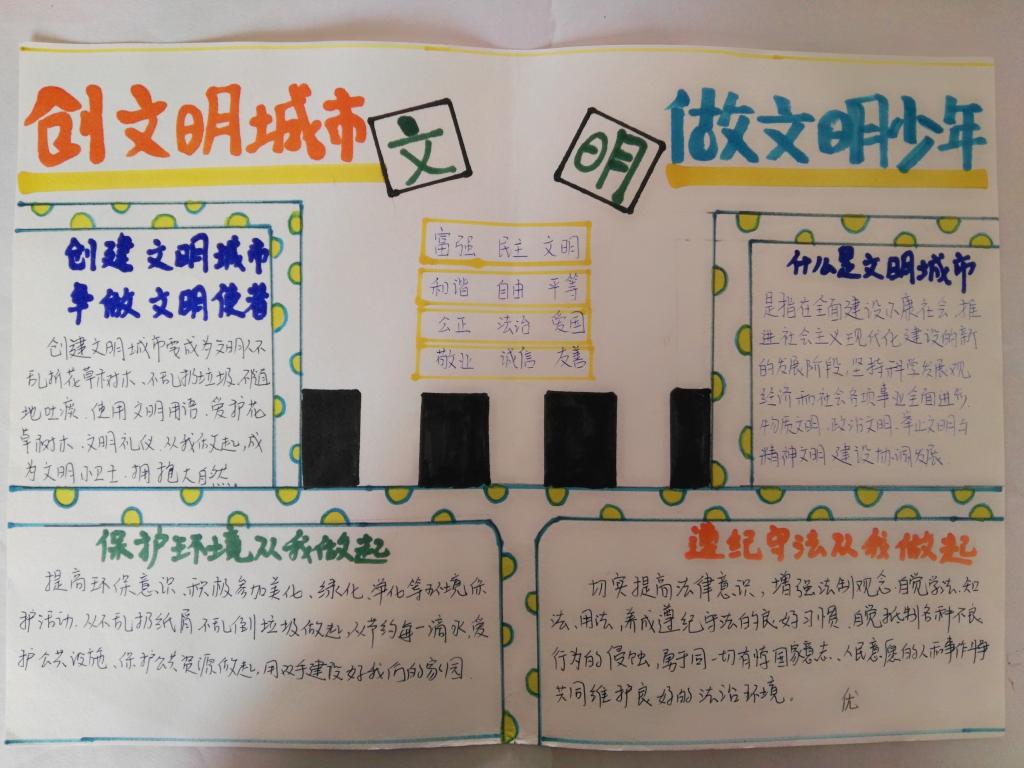 创文明城市
文
明
做文明少年
创建文明城市
争做文明使者
创建文明城市要成为文明人不
乱折花草树木、不乱扔垃圾、不随
地吐痰、使用文明用语、爱护花
草树木、文明礼仪、从我做起,成
为文明小卫士、拥抱大自然。
富强 民主 文明
和谐 自由 平等
公正 法治 爱国
敬业 诚信 友善
什么是文明城市
是指在全面建设小康社会、推
进社会主义现代化建设的新
的发展阶段,坚持科学发展观
经济和社会各项事业全面进步.
物质文明、政治文明、文明与
精神文明建设协调发展
保护环境从我做起
提高环保意识、积极参加美化、绿化、净化等环境保
护活动.从不乱扔纸屑不乱倒垃圾做起,从节约每一滴水、爱
护公共设施、保护公共资源做起,用双手建设好我们的家园.
遵纪守法从我做起
切实提高法律意识,增强法制观念自觉学法、知
法、用法,养成遵纪守法的良好习惯.自觉抵制各种不良
行为的侵蚀,勇于同一切有悖国家意志、人民意愿的人和事作
共同维护良好的法治环境。
优